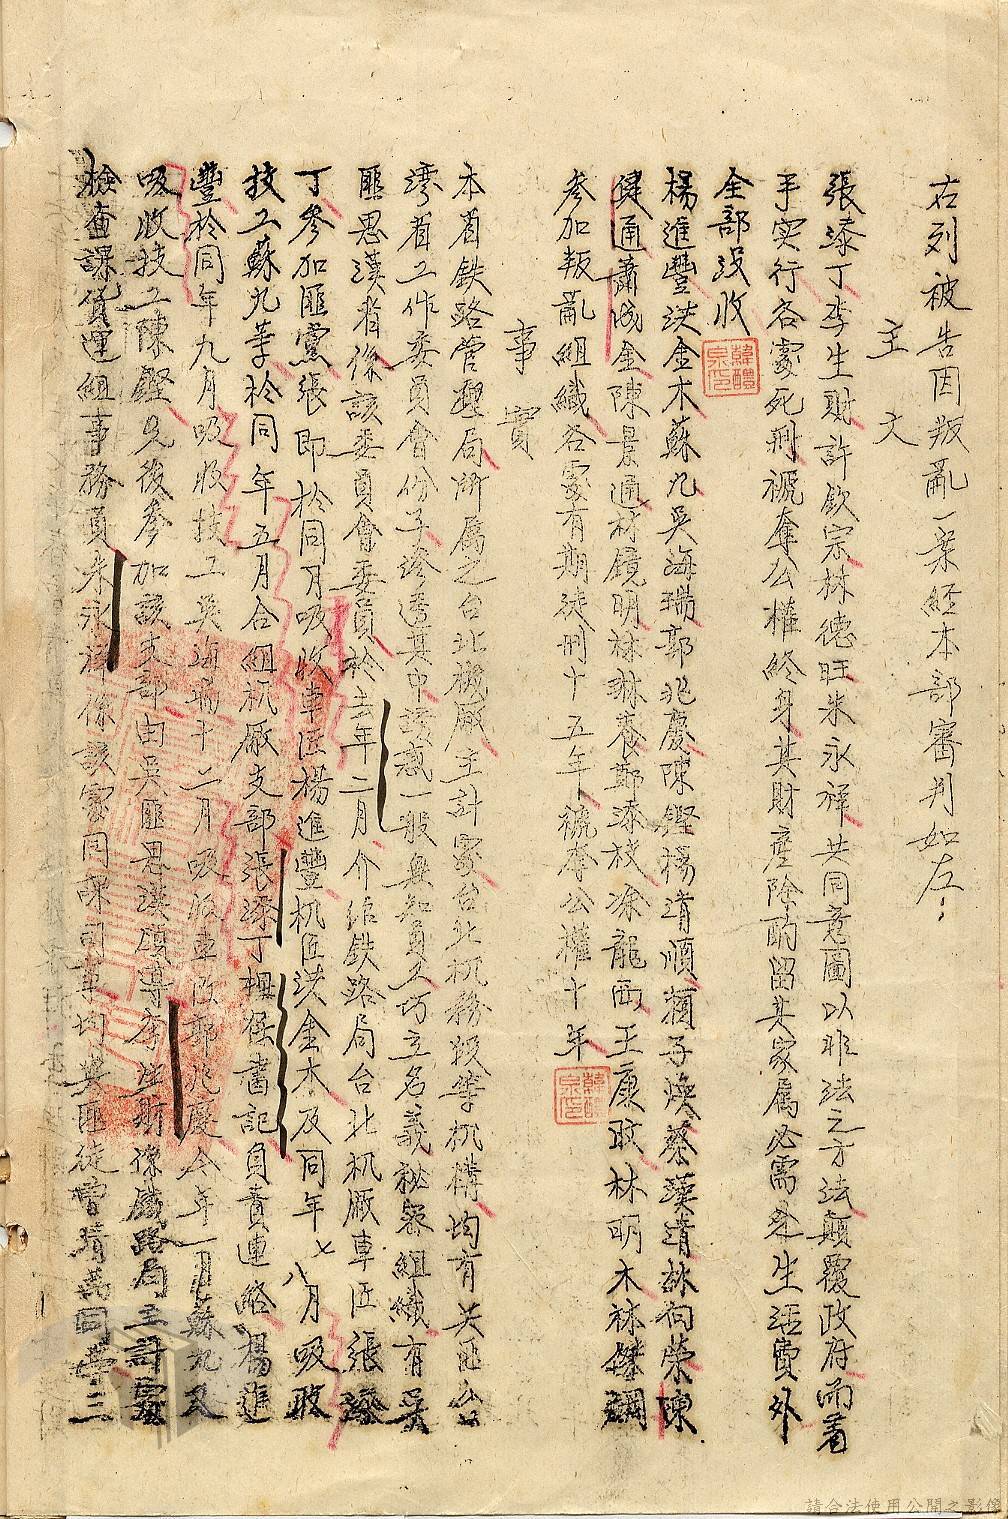 右列被告因叛亂一案經本部審判如左：
主文
張添丁李生財許欽宗林德旺朱永祥共同意圖以非法之方法顛覆政府而著
手實行各處死刑褫奪公權終身其財產除酌留其家屬必需之生活費外
全部沒收
楊進豐洪金木蘇九吳海瑞郭兆慶陳鏗楊清順賴子煥蔡漢清林向榮陳
健通蕭成金陳景通林鏡明林琳養鄭添枝涂龍西王康政林明木林傑鋼
參加叛亂組織各處有期徒刑十五年褫奪公權十年
事實
本省鉄路管理局所屬之台北機廠主計室台北机務段等机構均有共匪台
灣省工作委員會份子滲透其中誘惑一般無知員工巧立名義秘密組織有吳
匪思漢者係該委員會委員於去年二月介紹鉄路局台北机厰車匠張添
丁參加匪黨張即於同月吸收車匠楊進豐机匠洪金木及同年七八月吸收
技工蘇九等於同年五月合組机厰支部張添丁担任書記負責連絡楊進
豐於同年九月吸收技工吳海瑞十二月吸收車匠郭兆慶今年一月蘇九又
吸收技工陳鏗先後參加該支部由吳匪思漢領導李生財係鐵路局主計室
檢查課貨運組事務員朱永祥係該室同課司事均與匪徒曾